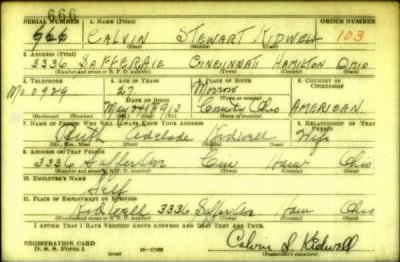 666
SERIAL NUMBER 1. NAME (Print) ORDER NUMBER
666 CALVIN STEWART KIDWELL 103
(First) (Middle) (Last)
2. ADDRESS (Print)
3336 SAFFERAIE CINCINNATI HAMILTON OHIO
(Number and street or R. F. D. number) (Town) (County) (State)
3. TELEPHONE 4. AGE IN YEARS 5. PLACE OF BIRTH 6. COUNTRY OF CITIZENSHIP
Mo 0929 27 Morrow
DATE OF BIRTH (Town or county)
May 1913 County Ohio AMERICAN
(Exchange) (Number) (Mo.) (Day) (Yr.) (State or country)
7. NAME OF PERSON WHO WILL ALWAYS KNOW YOUR ADDRESS 8. RELATIONSHIP OF THAT PERSON
Ruth Adelade Kidwell Wife
(Mr., Mrs., Miss) (First) (Middle) (Last)
9. ADDRESS OF THAT PERSON
3336 Saffer Ave Cin Ham Ohio
(Number and street or R. F. D. number) (Town) (County) (State)
10. EMPLOYER'S NAME
Self
11. PLACE OF EMPLOYMENT OR BUSINESS
Kidwell 3336 Saffer Ave Ham Ohio
(Number and street or R. F. D. number) (Town) (County) (State)
I AFFIRM THAT I HAVE VERIFIED ABOVE ANSWERS AND THAT THEY ARE TRUE.
REGISTRATION CARD
D. S. S. FORM 1 16-17105 Calvin S. Kidwell
(over) (Registrant's signature)